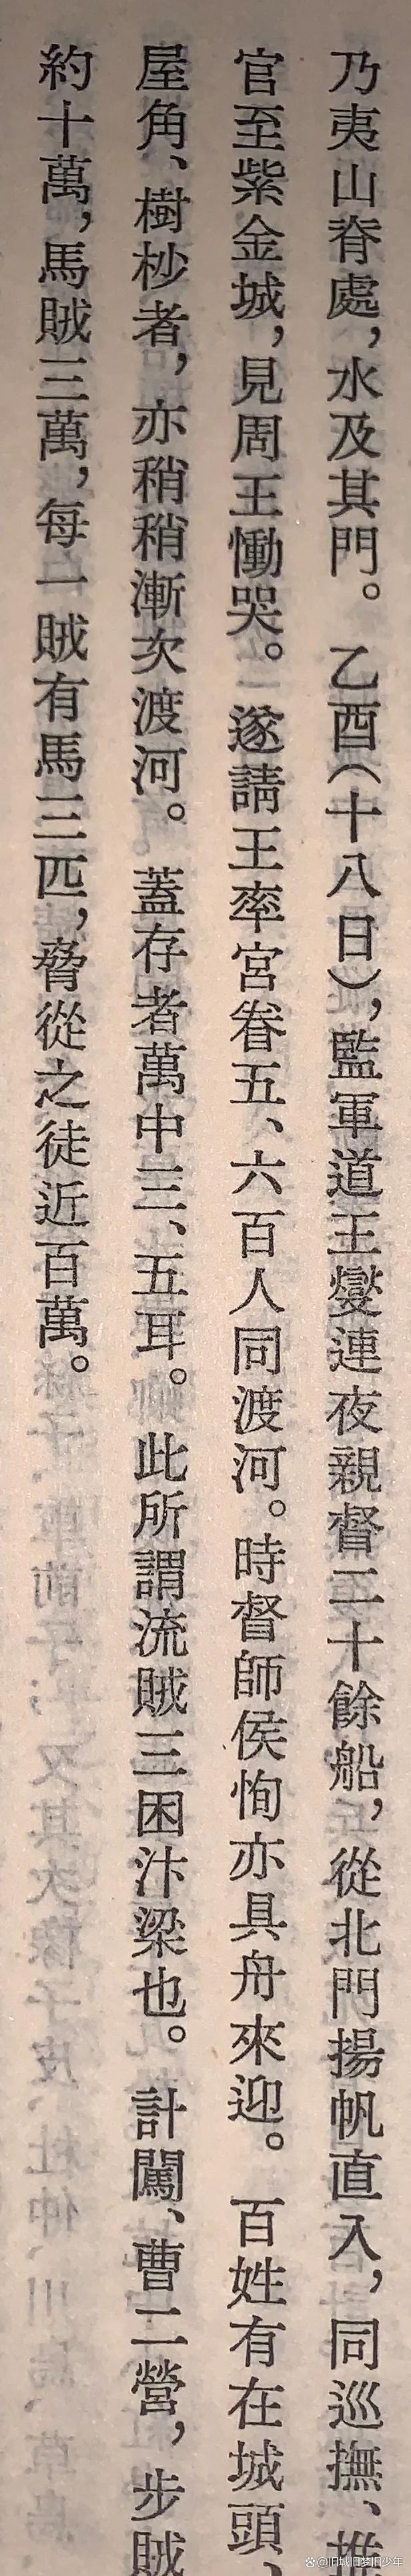 乃夷山脊處，水及其門。乙酉（十八日），監軍道王燮連夜親督二十餘船，從北門揚帆直入，同巡撫、推
官至紫金城，見周王慟哭。遂請王率宮眷五、六百人同渡河。時督師侯恂亦具舟來迎。百姓有在城頭、
屋角、樹杪者，亦稍稍漸次渡河。蓋存者萬中三、五耳。此所謂流賊三困汴梁也。計闖、曹二營，步賊
約十萬，馬賊三萬，每一賊有馬三匹，脅從之徒近百萬。
@旧城旧梦旧少年